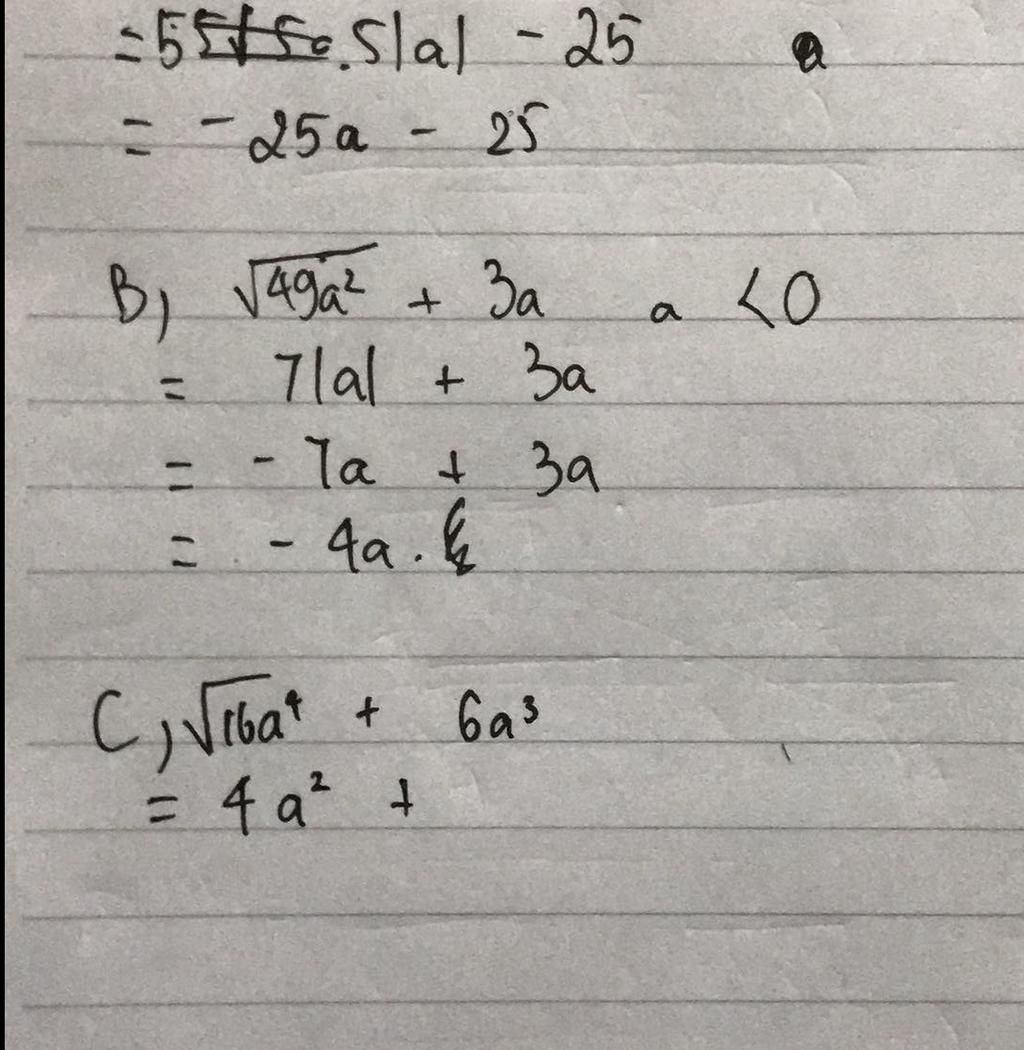 =5 .5|a| - 25 a
= - 25a - 25
B, √49a² + 3a a <0
= 7|a| + 3a
= - 7a + 3a
= - 4a .
C, √16a⁴ + 6a³
= 4a² +